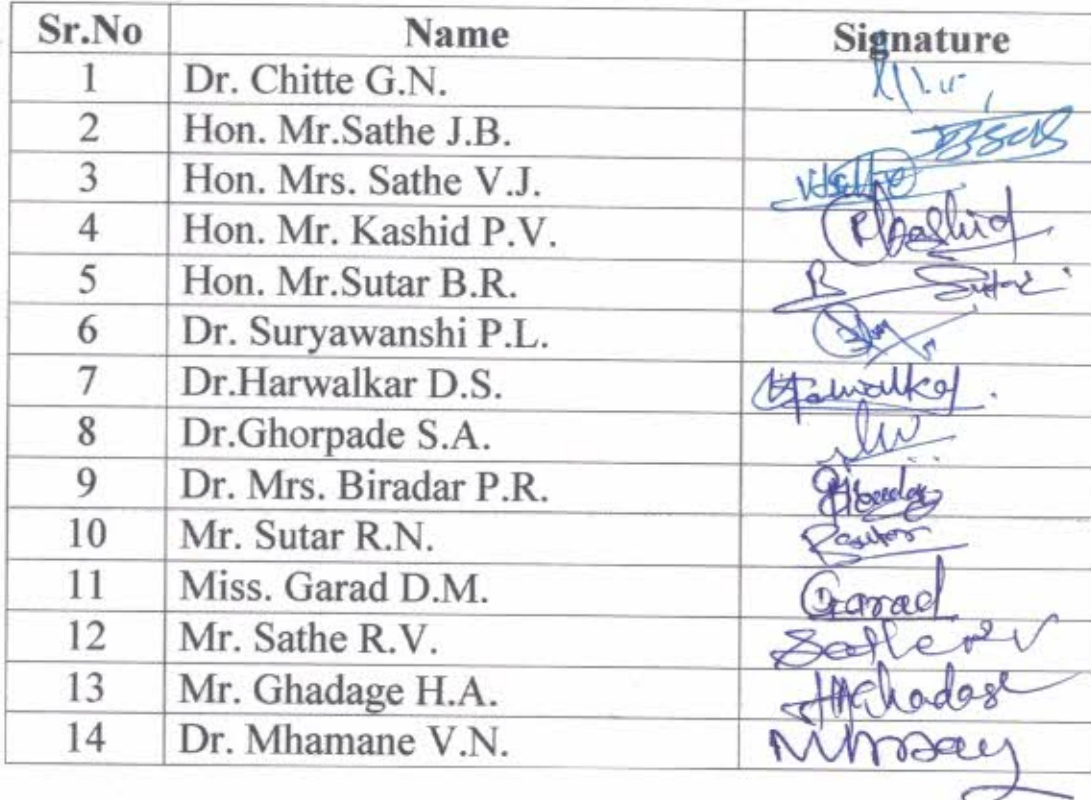 Sr.No Name Signature
1 Dr. Chitte G.N.
2 Hon. Mr.Sathe J.B.
3 Hon. Mrs. Sathe V.J.
4 Hon. Mr. Kashid P.V.
5 Hon. Mr.Sutar B.R. B Sutar
6 Dr. Suryawanshi P.L.
7 Dr.Harwalkar D.S.
8 Dr.Ghorpade S.A.
9 Dr. Mrs. Biradar P.R.
10 Mr. Sutar R.N.
11 Miss. Garad D.M. Garad
12 Mr. Sathe R.V. Sathe R V
13 Mr. Ghadage H.A. HAGhadage
14 Dr. Mhamane V.N.